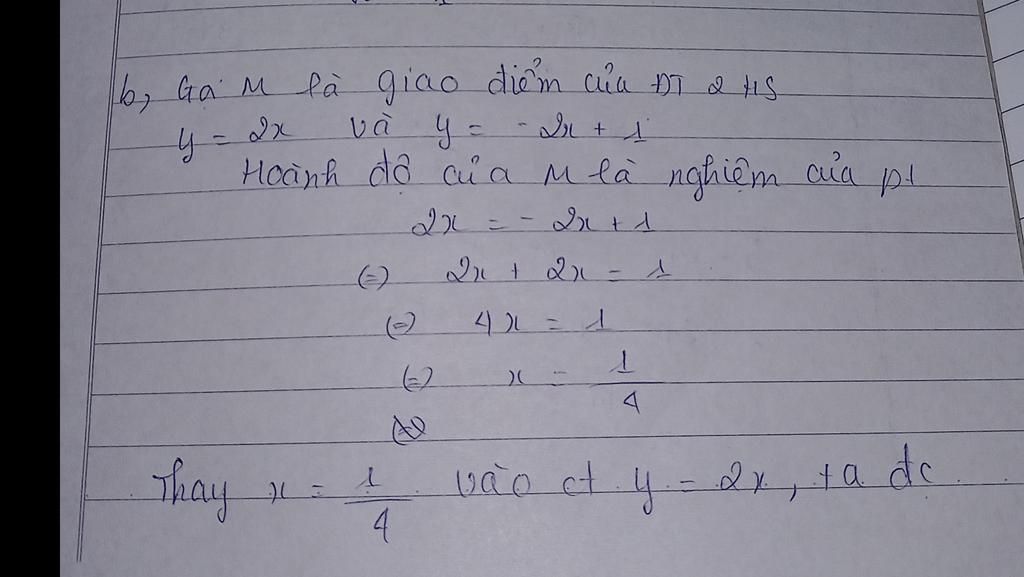 b, Gọi M là giao điểm của ĐT 2 HS
y = 2x và y = -2x + 1
Hoành độ của M là nghiệm của pt
2x = -2x + 1
(=) 2x + 2x = 1
(=) 4x = 1
(=) x = 1/4
Thay x = 1/4 vào ct y = 2x, ta đc